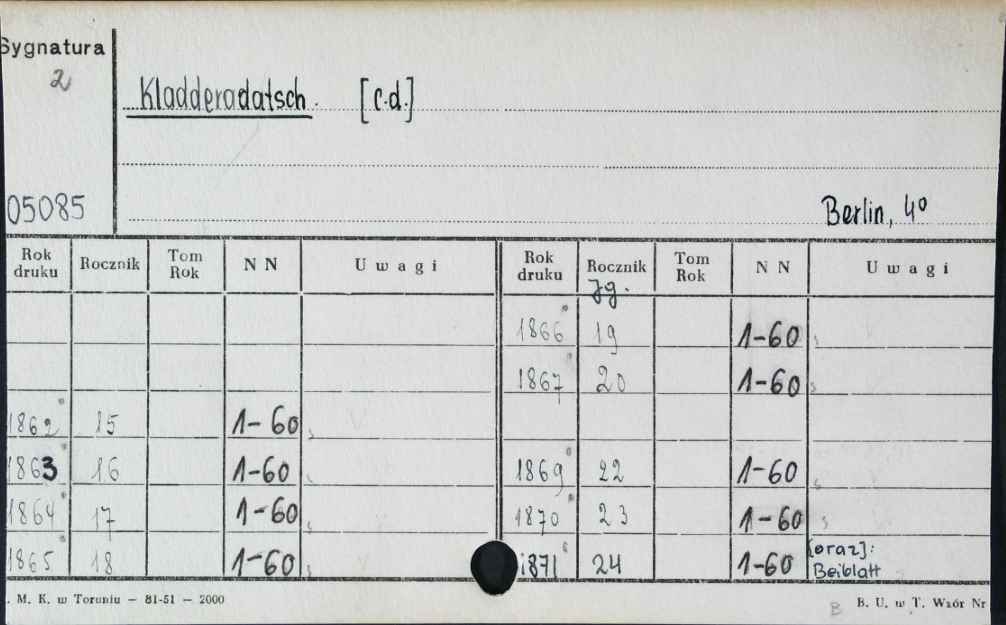 Sygnatura
2
Kladderadatsch. [c.d.]
05085
Berlin, 4º
Rok druku Rocznik Tom Rok NN Uwagi Rok druku Rocznik Tom Rok NN Uwagi
Jg.
1866 19 1-60
1867 20 1-60
1862 15 1-60
1863 16 1-60 1869 22 1-60
1864 17 1-60 1870 23 1-60
1865 18 1-60 1871 24 1-60 [oraz]:
Beiblatt
. M. K. w Toruniu — 81-51 — 2000
B B. U. w T. Wzór Nr